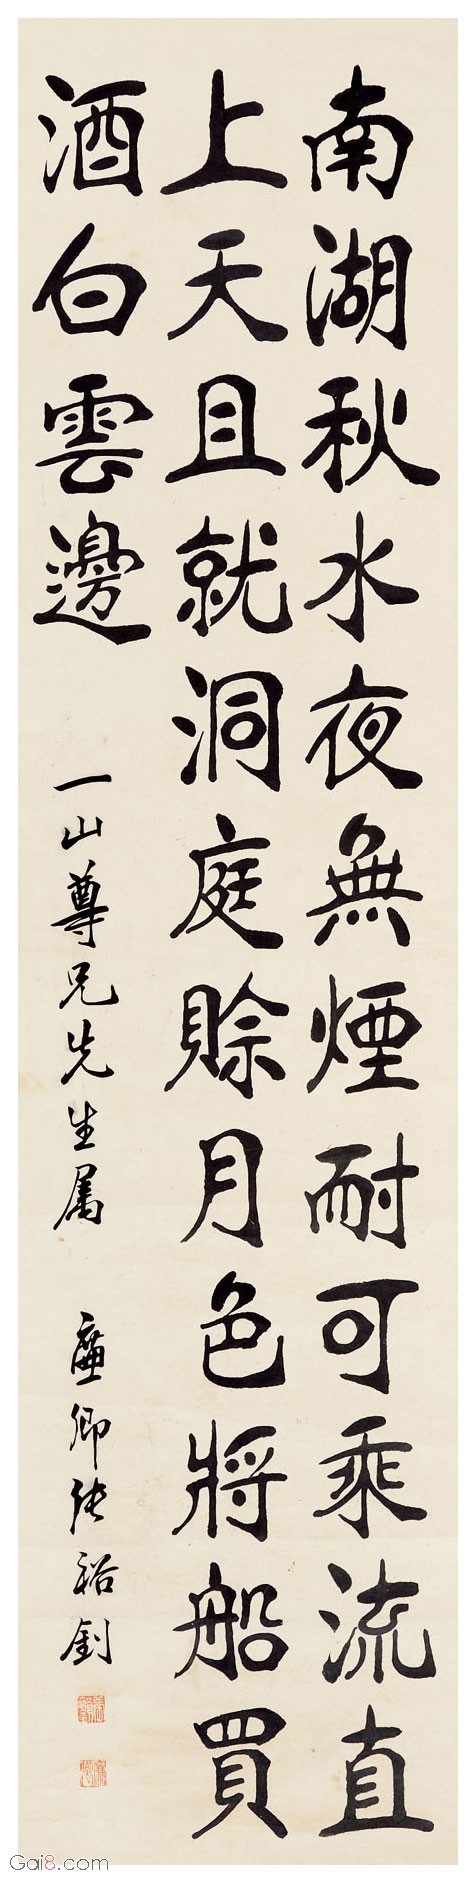 南湖秋水夜無煙耐可乘流直
上天且就洞庭賖月色將船買
酒白雲邊
一山尊兄先生属 廉卿張裕釗
Gai8.com